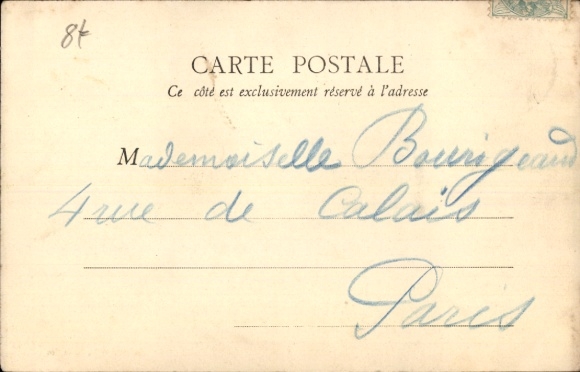 8f
CARTE POSTALE
Ce côté est exclusivement réservé à l'adresse
Mademoiselle Bourigeaud
4 rue de Calais
Paris